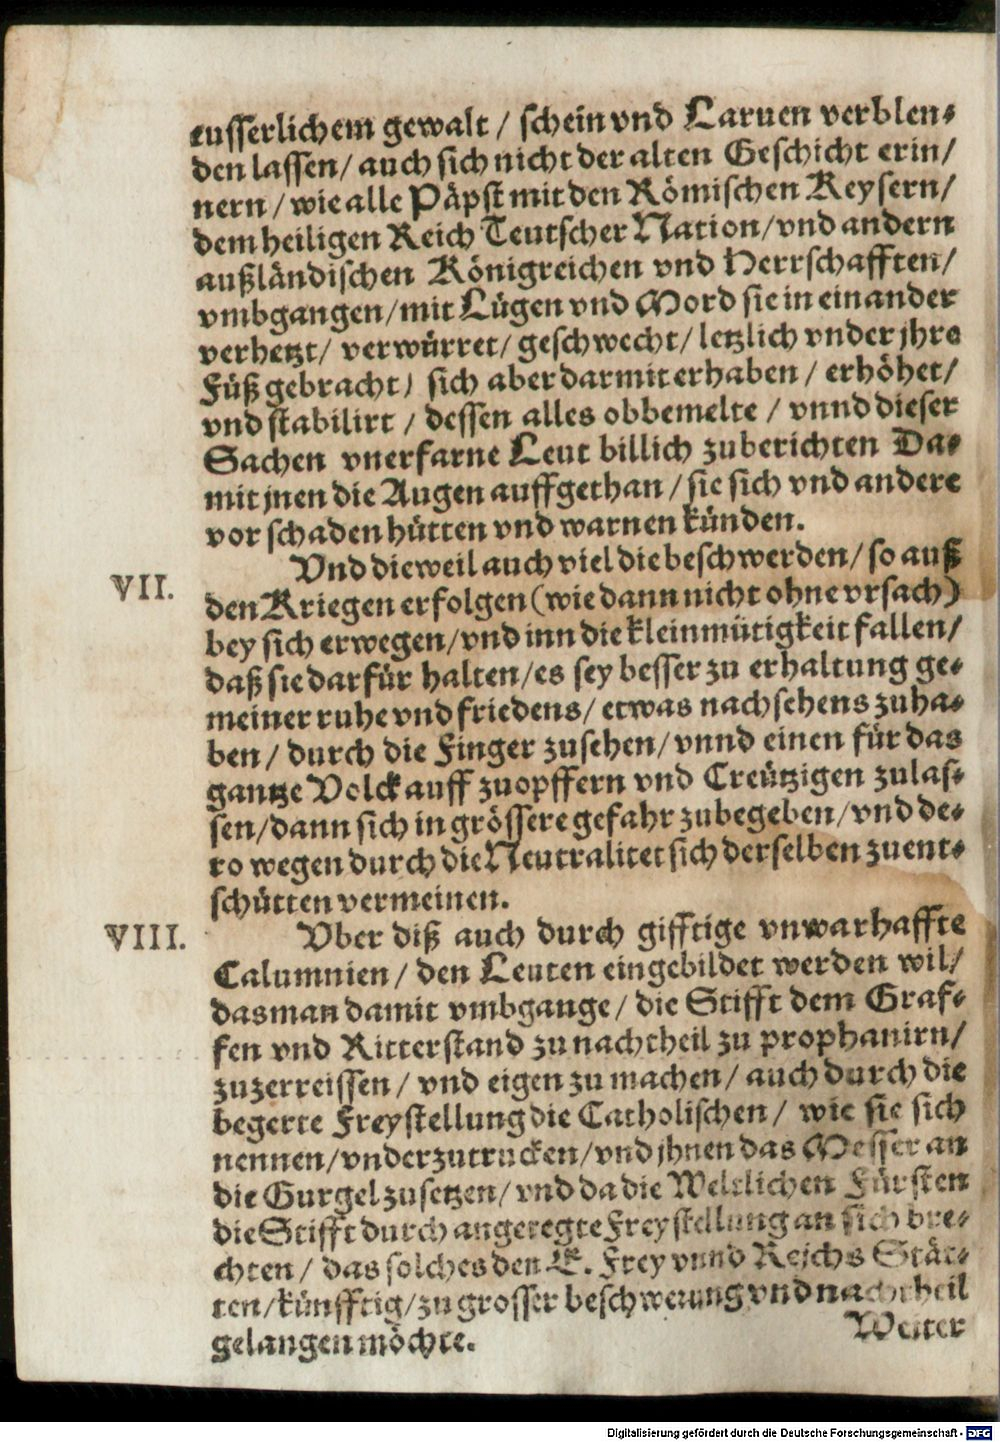 eusserlichem gewalt / schein vnd Laruen verblen-
den lassen/ auch sich nicht der alten Geschicht erin/
nern / wie alle Päpst mit den Römischen Keysern/
dem heiligen Reich Teutscher Nation/vnd andern
außländischen Königreichen vnd Herrschafften/
vmbgangen/mit Lügen vnd Mord sie in einander
verhetzt/ verwürret/ geschwecht/ letzlich vnder jhre
Füß gebracht/ sich aber darmit erhaben / erhöhet/
vnd stabilirt / dessen alles obbemelte / vnnd dieser
Sachen vnerfarne Leut billich zuberichten Da-
mit jnen die Augen auffgethan / sie sich vnd andere
vor schaden hütten vnd warnen künden.
VII. Vnd dieweil auch viel die beschwerden/ so auß
den Kriegen erfolgen (wie dann nicht ohne vrsach)
bey sich erwegen/vnd inn die kleinmütigkeit fallen/
daß sie darfür halten/es sey besser zu erhaltung ge-
meiner ruhe vnd friedens/ etwas nachsehens zuha-
ben / durch die Finger zusehen/ vnnd einen für das
gantze Volck auff zuopffern vnd Creützigen zulas-
sen/dann sich in grössere gefahr zubegeben/vnd de-
ro wegen durch die Neutralitet sich derselben zuent-
schütten vermeinen.
VIII. Vber diß auch durch gifftige vnwarhaffte
Calumnien / den Leuten eingebildet werden wil/
das man damit vmbgange/ die Stifft dem Graf-
fen vnd Ritterstand zu nachtheil zu prophanirn/
zuzerreissen / vnd eigen zu machen/ auch durch die
begerte Freystellung die Catholischen / wie sie sich
nennen/vnderzutrucken/vnd jhnen das Messer an
die Gurgel zusetzen/ vnd da die Weltlichen Fürsten
die Stifft durch angeregte Freystellung an sich bre-
chten / das solches den E. Frey vnnd Reichs Stät-
ten/künfftig/zu grosser beschwerung vnd nachtheil
gelangen möchte.
Weiter
Digitalisierung gefördert durch die Deutsche Forschungsgemeinschaft - DFG